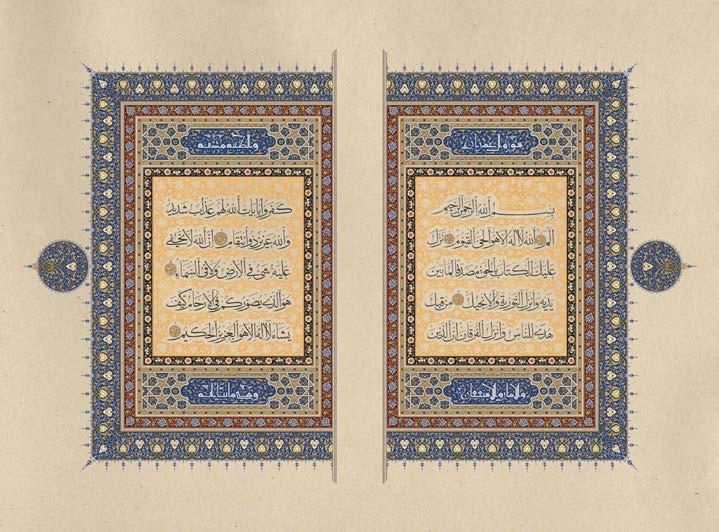 بسم الله الرحمن الرحيم
الم الله لا اله الا هو الحي القيوم نزل
عليك الكتاب بالحق مصدقا لما بين
يديه وانزل التورية والانجيل من قبل
هدى للناس وانزل الفرقان ان الذين
كفروا بايات الله لهم عذاب شديد
والله عزيز ذو انتقام ان الله لا يخفى
عليه شيء في الارض ولا في السماء
هو الذي يصوركم في الارحام كيف
يشاء لا اله الا هو العزيز الحكيم